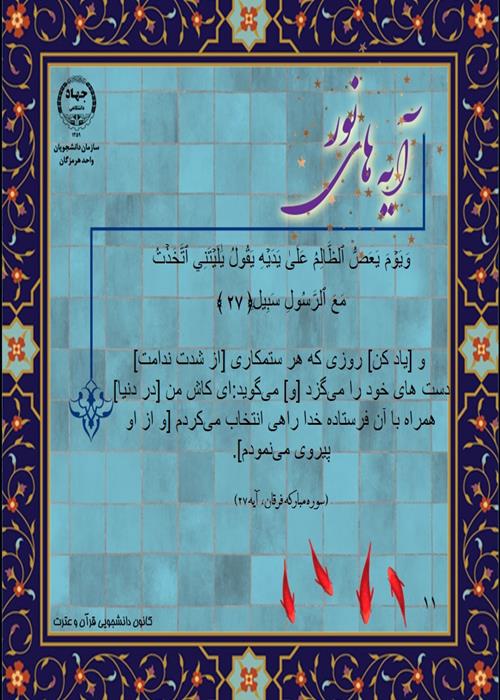 آیه های نور
جهاد
دانشگاهی
۱۳۵۹
سازمان دانشجویان
واحد هرمزگان
وَيَوۡمَ يَعَضُّ ٱلظَّالِمُ عَلَىٰ يَدَيۡهِ يَقُولُ يَٰلَيۡتَنِي ٱتَّخَذۡتُ
مَعَ ٱلرَّسُولِ سَبِيلٗ﴿ ۲۷ ﴾
و [یاد کن] روزی که هر ستمکاری [از شدت ندامت]
دست های خود را می‌گزد [و] می‌گوید:ای کاش من [در دنیا]
همراه با آن فرستاده خدا راهی انتخاب می‌کردم [و از او
پیروی می‌نمودم].
(سوره مبارکه فرقان، آیه ۲۷)
۱۱
کانون دانشجویی قرآن و عترت